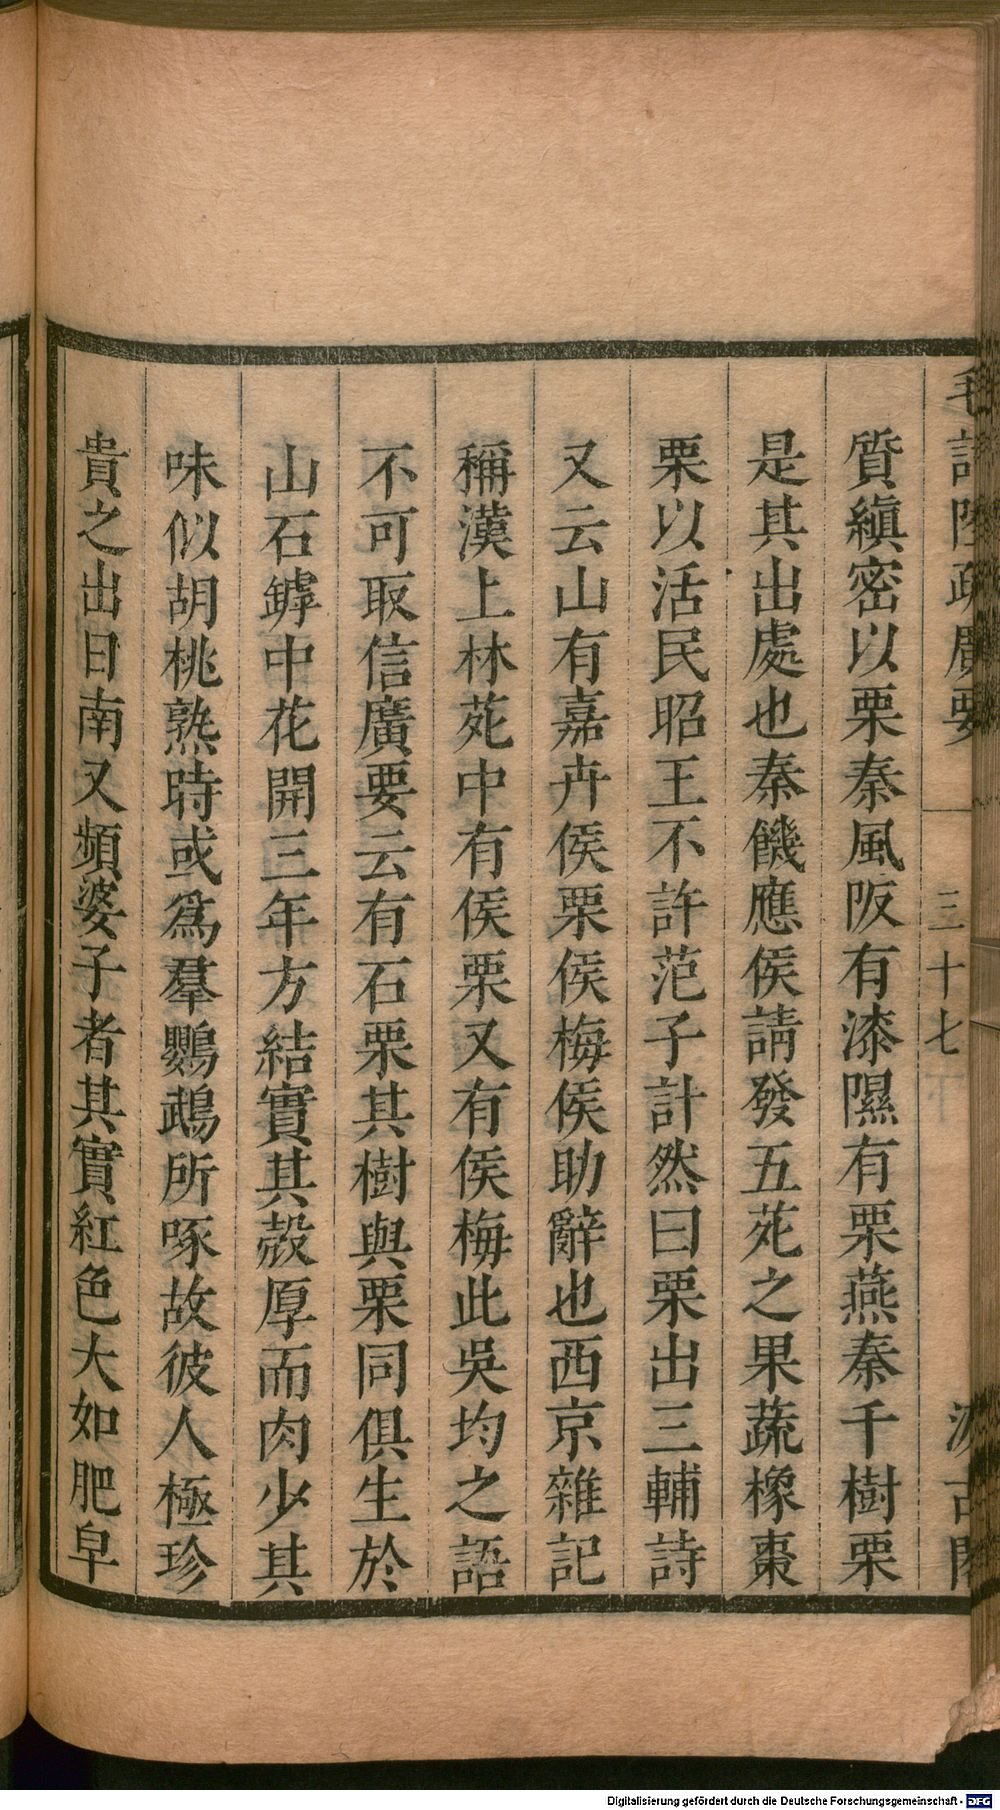 毛詩陸疏廣要 三十七 汲古閣
質縝密以栗秦風阪有漆隰有栗燕秦千樹栗
是其出處也秦饑應侯請發五苑之果蔬橡棗
栗以活民昭王不許范子計然曰栗出三輔詩
又云山有嘉卉侯栗侯梅侯助辭也西京雜記
稱漢上林苑中有侯栗又有侯梅此吳均之語
不可取信廣要云有石栗其樹與栗同俱生於
山石罅中花開三年方結實其殼厚而肉少其
味似胡桃熟時或為羣鸚鵡所啄故彼人極珍
貴之出日南又頻婆子者其實紅色大如肥皁
Digitalisierung gefördert durch die Deutsche Forschungsgemeinschaft - DFG